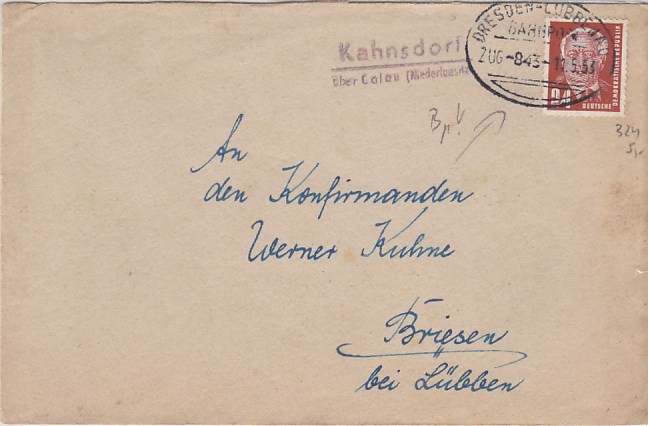 Kahnsdorf
über Calau (Niederlausitz)
DRESDEN-LÜBBENAU
BAHNPOST
ZUG-843- 11.5.53
24
DEUTSCHE
DEMOKRATISCHE REPUBLIK
324
5,-
An
den Konfirmanden
Werner Kuhne
Briesen
bei Lübben